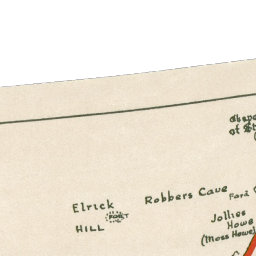 of St
Elrick
FORT
HILL
Robbers Cave
Ford
Jollies
Howe
(Moss Howe)